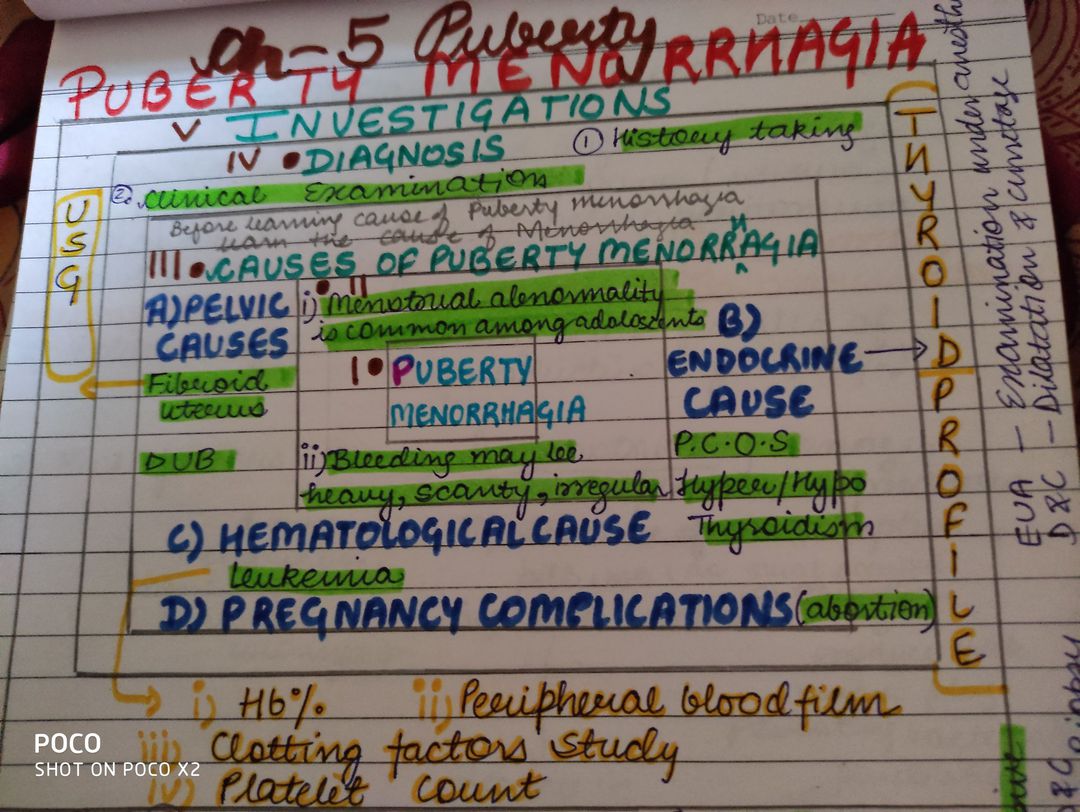 Date
Ch-5 Puberty
PUBERTY MENORRHAGIA
V INVESTIGATIONS
IV • DIAGNOSIS ① History taking
② Clinical Examination
Before learning cause of Puberty menorrhagia
learn the cause of Menorrhagia
III • CAUSES OF PUBERTY MENORRHAGIA
• II
A) PELVIC CAUSES
Fibroid
uterus
DUB
i) Menstrual abnormality
is common among adoloscents
I • PUBERTY
MENORRHAGIA
ii) Bleeding may be
heavy, scanty, irregular
B)
ENDOCRINE
CAUSE
P.C.O.S
Hyper/Hypo
Thyroidism
C) HEMATOLOGICAL CAUSE
Leukemia
D) PREGNANCY COMPLICATIONS (abortion)
USG
THYROID PROFILE
i) Hb% ii) Peripheral blood film
iii) Clotting factors study
iv) Platelet count
EUA — Examination under
D&C — Dilatation & curretage
POCO
SHOT ON POCO X2